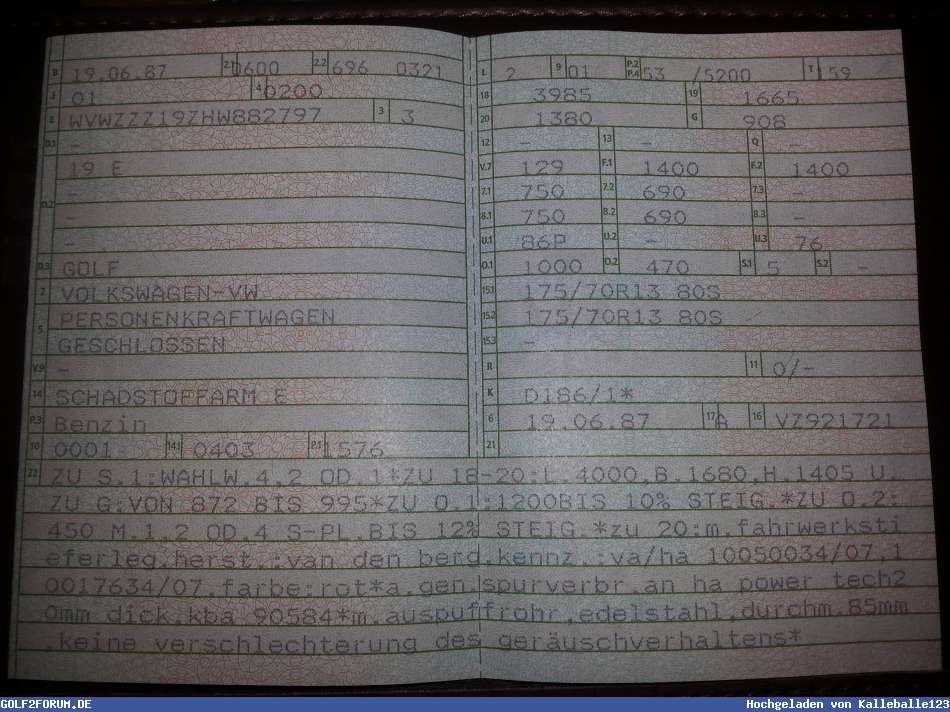 B 19.06.87 2.1 0600 2.2 696 0321
J 01 4 0200
E WVWZZZ19ZHW882797 3 3
D.1 -
19 E
D.2 -
-
D.3 GOLF
2 VOLKSWAGEN-VW
5 PERSONENKRAFTWAGEN
GESCHLOSSEN
V.9 -
14 SCHADSTOFFARM E
P.3 Benzin
10 0001 14.1 0403 P.1 1576
L 2 9 01 P.2 P.4 53 /5200 T 159
18 3985 19 1665
20 1380 G 908
12 - 13 - Q -
V.7 129 F.1 1400 F.2 1400
7.1 750 7.2 690 7.3 -
8.1 750 8.2 690 8.3 -
U.1 86P U.2 - U.3 76
O.1 1000 O.2 470 S.1 5 S.2 -
15.1 175/70R13 80S
15.2 175/70R13 80S
15.3 -
R 11 0/-
K D186/1*
6 19.06.87 17 A 16 VZ921721
21
22 ZU S.1:WAHLW.4,2 OD.1*ZU 18-20:L.4000,B.1680,H.1405 U.
ZU G:VON 872 BIS 995*ZU O.1:1200BIS 10% STEIG.*ZU O.2:
450 M.1,2 OD.4 S-PL.BIS 12% STEIG.*zu 20:m.fahrwerksti
eferleg.herst.:van den berg,kennz.:va/ha 10050034/07,1
0017634/07,farbe:rot*a.gen.spurverbr an ha power tech2
0mm dick,kba 90584*m.auspuffrohr,edelstahl,durchm.85mm
,keine verschlechterung des geräuschverhaltens*
GOLF2FORUM.DE
Hochgeladen von Kalleballe123